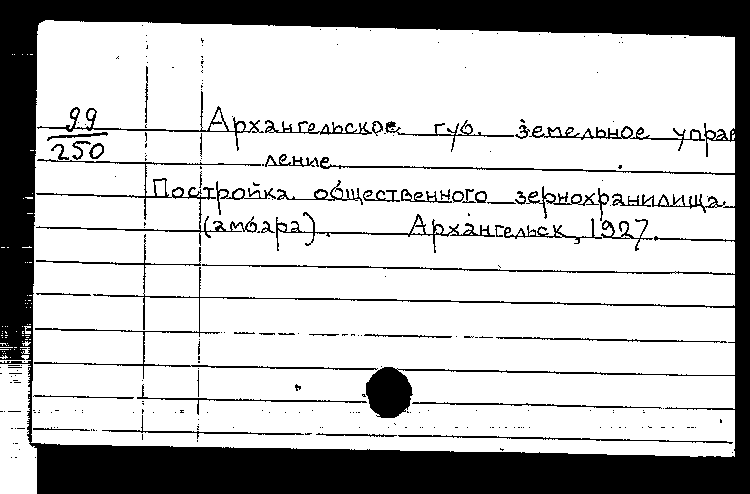 99
250
Архангельское губ. земельное управ
ление.
Постройка общественного зернохранилища
(амбара). Архангельск, 1927.